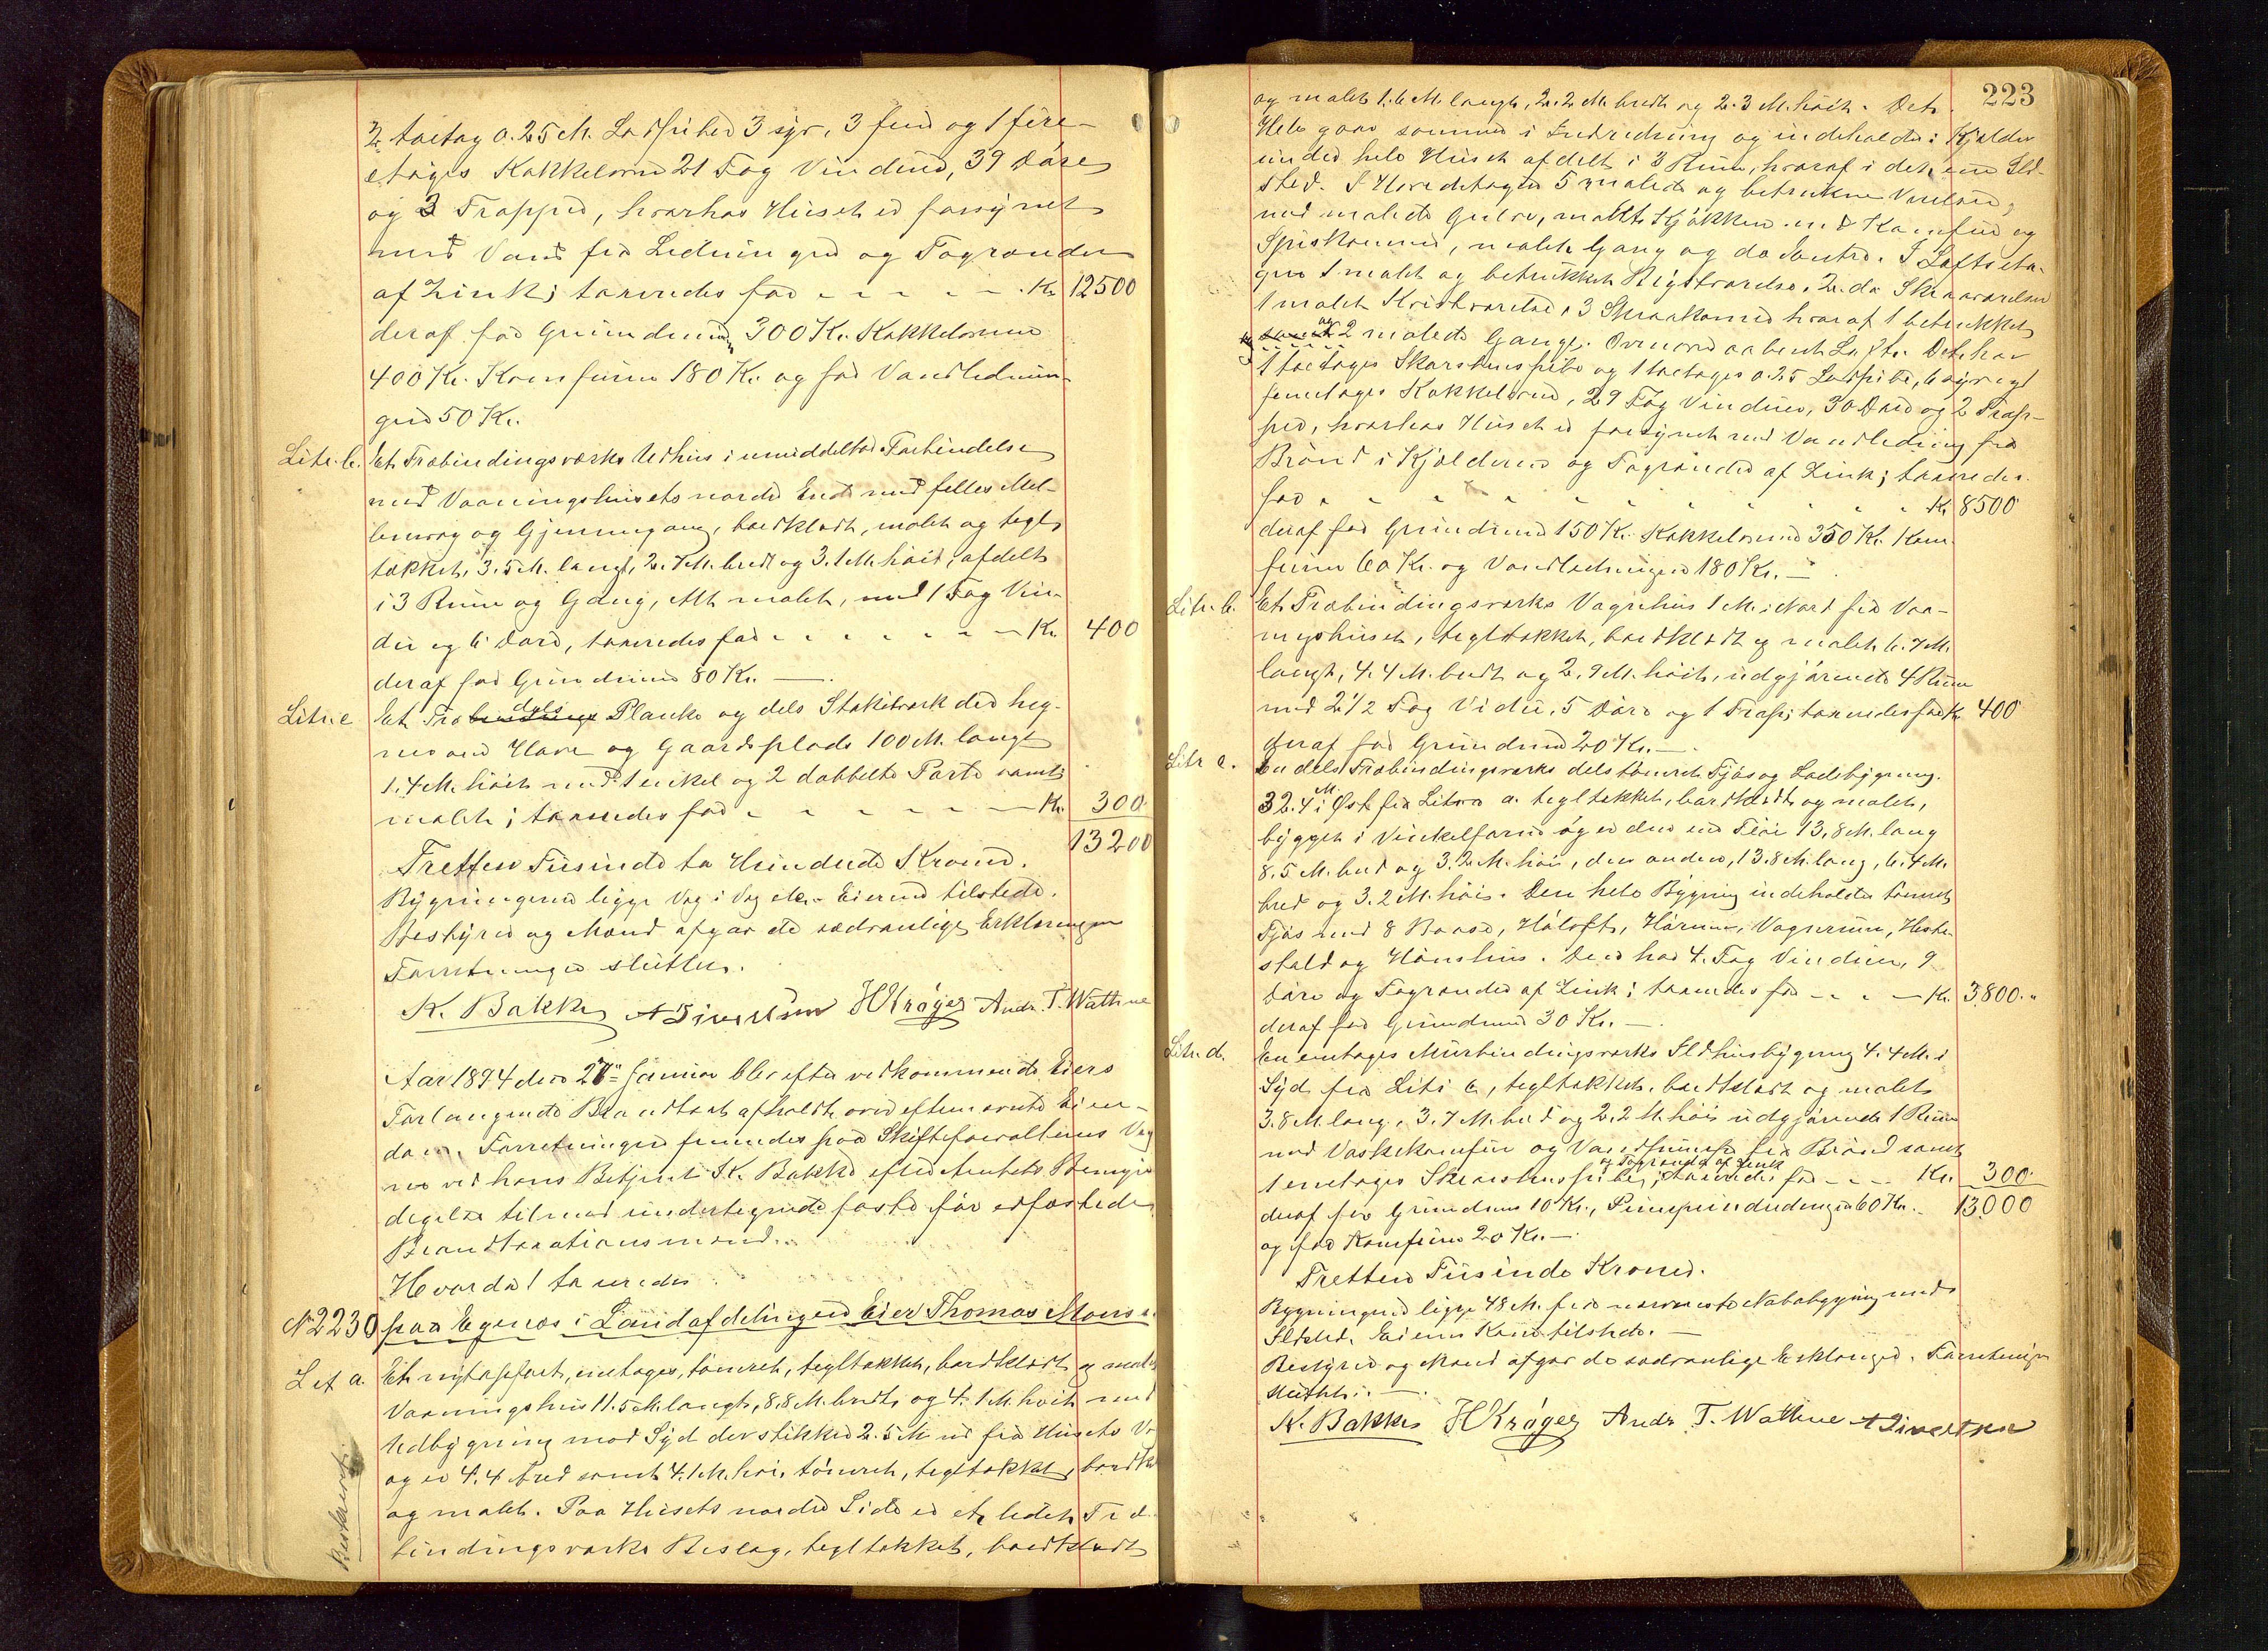 2 toetag 0.25 M. Lodpiber 3 syv, 3 fem og 1 fire-
etages Kakkelovne 21 Fag Vinduer, 39 Døre
og 3 Trapper, hvorhos Huset er forsynet
med Vand fra Ledningen og Tagrender
af Zink; taxeredes for - - - - - Kr. 12500
deraf for Grundmur 300 Kr. Kakkelovne
400 Kr. Komfurer 180 Kr. og for Vandlednin-
gen 50 Kr.
Litr. b. Et Træbindingsværks Udhus i umiddelbar Forbindelse
med Vaaningshusets nordre Ende med fælles Mel-
lemvæg og Gjennemgang, bordklædt, malet og tegl-
tækket, 3.5 M. langt, 2.7 M. bredt og 3.1 M. høit, afdelt
i 3 Rum og Gang, Alt malet, med 1 Fag Vin-
du og 6 Døre, taxeredes for - - - - - - Kr. 400
deraf for Grundmur 80 Kr. —
Litr. c Et Træ dels Planke og dels Stakitværk der heg-
ner om Have og Gaardsplads 100 M. langt
1.4 M. høit med 1 enkel og 2 dobbelte Porte samt
malet; taxeredes for - - - - - - Kr. 300
13200
Tretten Tusinde to Hundrede Kroner.
Bygningerne ligge Væg i Væg etc. Eieren tilstede.
Bestyrer og Mænd afgav de sædvanlige Erklæringer
Forretningen sluttet.
K. Bakke A Sivertsen H Krøger Andr. T. Wathne
Aar 1894 den 27de Januar blev efter vedkommende Eiers
Forlangende Brandtaxt afholdt over efternævnte Eien-
dom. Forretningen fremmedes paa Skifteforvalterens Veg-
ne ved hans Betjent K. Bakke efter Amtets Bemyn-
digelse tilmed undertegnede faste før edfæstede
Brandtaxationsmænd.
Hvorda! taxeredes
No 2230 paa Egenæs i Landafdelingen Eier Thomas Mons
Let a. Et nyt opført, enetages, tømret, tegltækket, bordklædt og malet
Vaaningshus 11.5 M. langt, 8.8 M. bredt og 4.1 M. høit med
Udbygning mod Syd der stikker 2.5 M ud fra Husets
og er 4.4 bred samt 4.1 M. høi, tømret, tegltækket, bordk
og malet. Paa Husets nordre Side er et lidet Træ-
bindingsværks Bislag, tegltækket, bordklædt
223
og malet 1.6 M. langt, 2.2 M. bredt og 2.3 M. høit. Det
Hele gaar sammen i Indredning og indeholder: Kjælder
under hele Huset afdelt i 3 Rum, hvoraf i det ene Ild-
sted. I Hovedetagen 5 malede og betrukne Værelser,
med malede Gulve, malet Kjøkken med Komfur og
Spiskammer, malet Gang og do Entre. I Loftseta-
gen 1 malet og betrukket Kvistværelse, 2 do Skraaværelser
1 malet Kvistværelse, 3 Skraakamre hvoraf 1 betrukket
og 2 malede Gange. Ovenover aabent Loft. Det har
1 toetages Skorstenspibe og 1 toetages 0.25 Lodpibe, 6 syv og 1
femetages Kakkelovne, 29 Fag Vinduer, 30 Døre og 2 Trap-
per, hvorhos Huset er forsynet med Vandledning fra
Brønd i Kjælderen og Tagrender af Zink; taxeredes
for - - - - - - - - - Kr. 8500
deraf for Grundmur 150 Kr. Kakkelovne 350 Kr. Kom-
furer 60 Kr. og Vandledningen 180 Kr. —
Litr. b. Et Træbindingsværks Vognhus 1 M. i Nord fra Vaa-
ningshuset, tegltækket, bordklædt og malet 6.7 M.
langt, 4.4 M. bredt og 2.9 M. høit, udgjørende 4 Rum
med 2 1/2 Fag Vidu, 5 Døre og 1 Trap; taxeredes for Kr. 400
deraf for Grundmur 20 Kr. —
Litr c. En dels Træbindingsværks dels tømret Fjøs og Ladebygning.
32.4 M. i Øst fra Litra a. tegltækket, bordklædt og malet,
bygget i Vinkelform og er den ene Fløi 13.8 M. lang
8.5 M. bred og 3.2 M. høi, den anden, 13.8 M. lang, 6.4 M.
bred og 3.2 M. høi. Den hele Bygning indeholder tømret
Fjøs med 8 Baase, Høloft, Hørum, Vognrum, Heste-
stald og Hønshus. Den har 4. Fag Vinduer, 9
Døre og Tagrender af Zink; taxeredes for - - - Kr. 3800.
deraf for Grundmur 30 Kr. —
Litr. d. En enetages Murbindingsværks Ildhusbygning 4.4 M. i
Syd fra Litr c, tegltækket, bordklædt og malet
3.8 M. lang, 3.7 M. bred og 2.2 M. høi udgjørende 1 Rum
med Vaskekomfur og Vandpumpe fra Brønd samt
1 enetages Skorstenspibe og Tagrender af Zink; taxeredes for - - - Kr. 300
deraf for Grundmur 10 Kr., Pumpeindredningen 60 Kr. 13000
og for Komfuren 20 Kr. —
Tretten Tusinde Kroner.
Bygningerne ligge 48 M. fra nærmeste Nabobygning med
Ildsted. Eierens Kone tilstede. —
Bestyrer og Mænd afgav de sædvanlige Erklæringer. Forretningen
sluttet. —
K. Bakke H Krøger Andr T. Wathne A Sivertsen